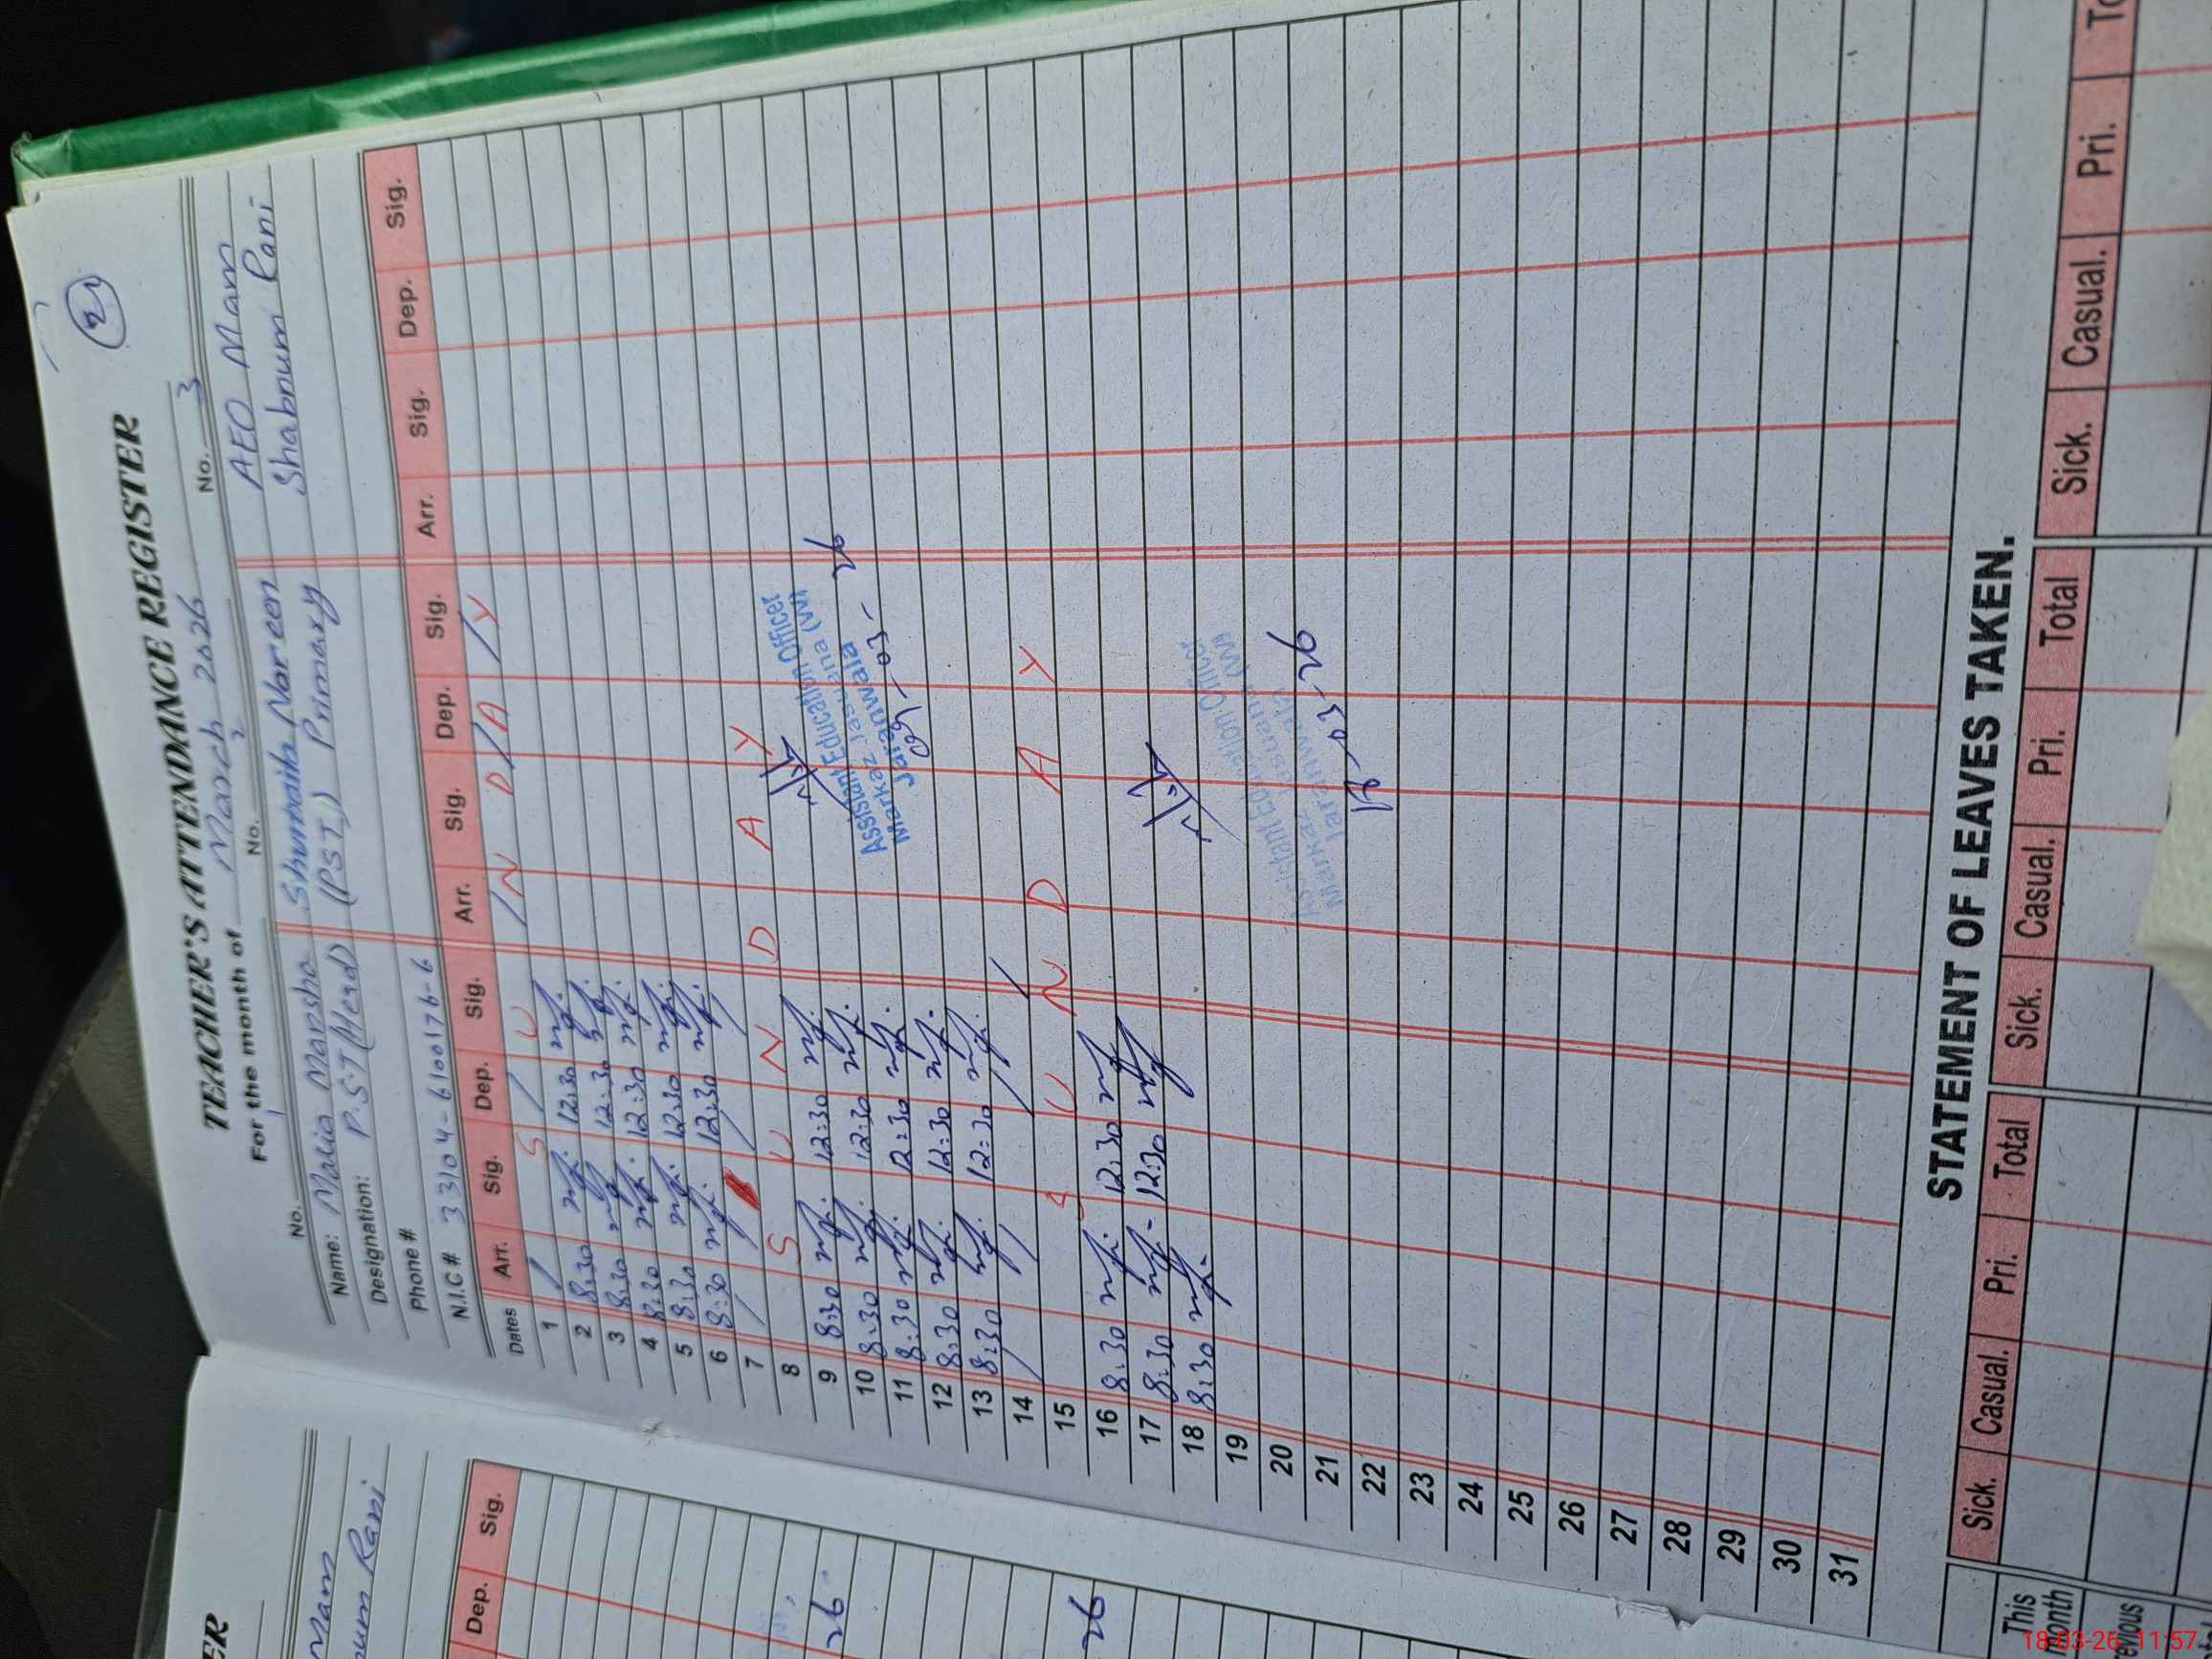 2
TEACHER'S ATTENDANCE REGISTER
For the month of March 2026
No. No. 2 No. 3
Name: Maria Mansha Shumaila Noreen AEO Mam
Designation: P.S.T (Head) (PST) Primary Shabnum Rani
Phone #
N.I.C # 33104-6100176-6
Dates Arr. Sig. Dep. Sig. Arr. Sig. Dep. Sig. Arr. Sig. Dep. Sig.
1 S U N D A Y
2 8:30 12:30
3 8:30 12:30
4 8:30 12:30
5 8:30 12:30
6 8:30 12:30
7
8 S U N D A Y
9 8:30 12:30
10 8:30 12:30
11 8:30 12:30
12 8:30 12:30
13 8:30 12:30
14
15 S U N D A Y
16 8:30 12:30
17 8:30 12:30
18 8:30
19
20
21
22
23
24
25
26
27
28
29
30
31
Assistant Education Officer
Markaz Jassuana (W)
Jaranwala
09-03-26
Assistant Education Officer
Markaz Jassuana (W)
Jaranwala
18-03-26
STATEMENT OF LEAVES TAKEN.
Sick. Casual. Pri. Total Sick. Casual. Pri. Total Sick. Casual. Pri.
This
Month
Mam
Rani
Dep. Sig.
26
26
18-03-26 11:57